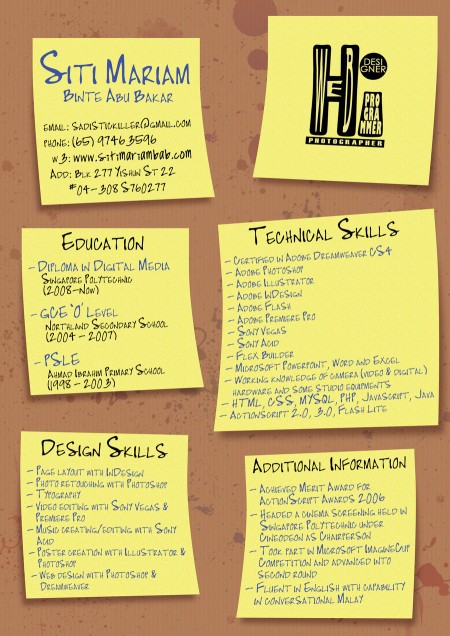 SITI MARIAM
BINTE ABU BAKAR
EMAIL: SADISTICKILLER@GMAIL.COM
PHONE: (65) 9746 3596
W3: www.sitimariambab.com
ADD: BLK 277 YISHUN ST 22
#04-308 S760277
HER
DESIGNER
PROGRAMMER
PHOTOGRAPHER
EDUCATION
- DIPLOMA IN DIGITAL MEDIA
SINGAPORE POLYTECHNIC
(2008-NOW)
- GCE 'O' LEVEL
NORTHLAND SECONDARY SCHOOL
(2004 - 2007)
- PSLE
AHMAD IBRAHIM PRIMARY SCHOOL
(1998 - 2003)
TECHNICAL SKILLS
- CERTIFIED IN ADOBE DREAMWEAVER CS4
- ADOBE PHOTOSHOP
- ADOBE ILLUSTRATOR
- ADOBE INDESIGN
- ADOBE FLASH
- ADOBE PREMIERE PRO
- SONY VEGAS
- SONY ACID
- FLEX BUILDER
- MICROSOFT POWERPOINT, WORD AND EXCEL
- WORKING KNOWLEDGE OF CAMERA (VIDEO & DIGITAL)
HARDWARE AND SOME STUDIO EQUIPMENTS
- HTML, CSS, MYSQL, PHP, JAVASCRIPT, JAVA
- ACTIONSCRIPT 2.0, 3.0, FLASH LITE
DESIGN SKILLS
- PAGE LAYOUT WITH INDESIGN
- PHOTO RETOUCHING WITH PHOTOSHOP
- TYPOGRAPHY
- VIDEO EDITING WITH SONY VEGAS &
PREMIERE PRO
- MUSIC CREATING/EDITING WITH SONY
ACID
- POSTER CREATION WITH ILLUSTRATOR &
PHOTOSHOP
- WEB DESIGN WITH PHOTOSHOP &
DREAMWEAVER
ADDITIONAL INFORMATION
- ACHIEVED MERIT AWARD FOR
ACTIONSCRIPT AWARDS 2006
- HEADED A CINEMA SCREENING HELD IN
SINGAPORE POLYTECHNIC UNDER
CINEODEON AS CHAIRPERSON
- TOOK PART IN MICROSOFT IMAGINECUP
COMPETITION AND ADVANCED INTO
SECOND ROUND
- FLUENT IN ENGLISH WITH CAPABILITY
IN CONVERSATIONAL MALAY